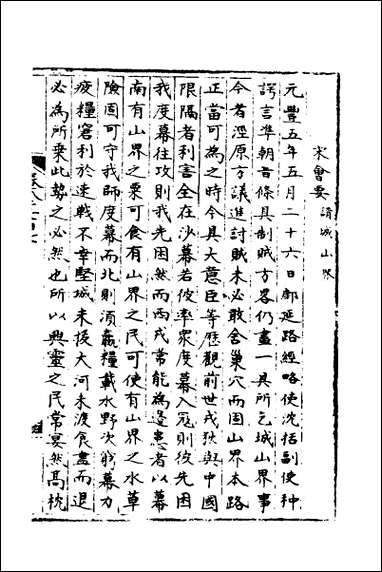 宋會要 請城山界
元豐五年五月二十六日鄜延路經略使沈括副使种
諤言準朝旨條具制賊方畧仍畫一具所乞城山界事
今者涇原方議進討賊未必敢舍巢穴而固山界本路
正當可為之時今具大意臣等歷觀前世戎狄與中國
限隔者利害全在沙幕若彼率眾度幕入寇則彼先困
我度幕往攻則我先困然而西戎常能為邊患者以幕
南有山界之粟可食有山界之民可使有山界之水草
險固可守我師度幕而北則須贏糧載水野次窮幕力
疲糧窘利於速戰不幸堅城未拔大河未渡食盡而退
必為所乗此勢之必然也所以興靈之民常宴然髙枕